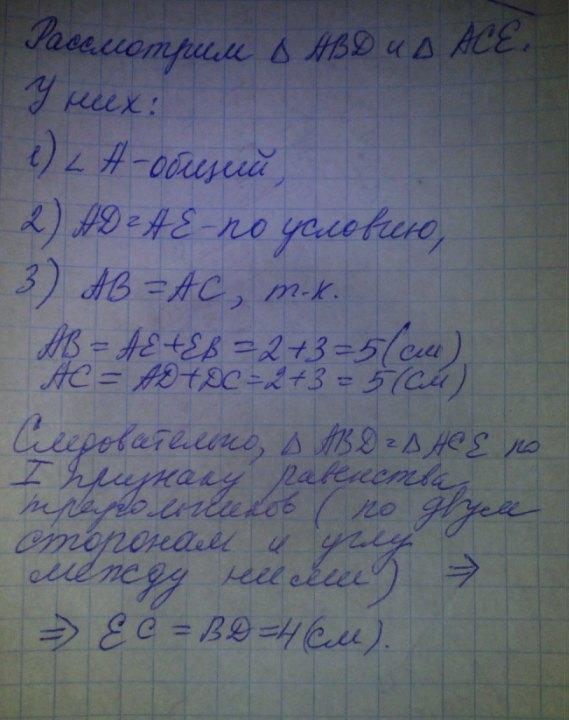 Рассмотрим △ ABD и △ ACE.
У них:
1) ∠ A - общий,
2) AD = AE - по условию,
3) AB = AC, т.к.
AB = AE + EB = 2 + 3 = 5 (см)
AC = AD + DC = 2 + 3 = 5 (см)
Следовательно, △ ABD = △ ACE по
I признаку равенства
треугольников (по двум
сторонам и углу
между ними) ⇒
⇒ EC = BD = 4 (см).